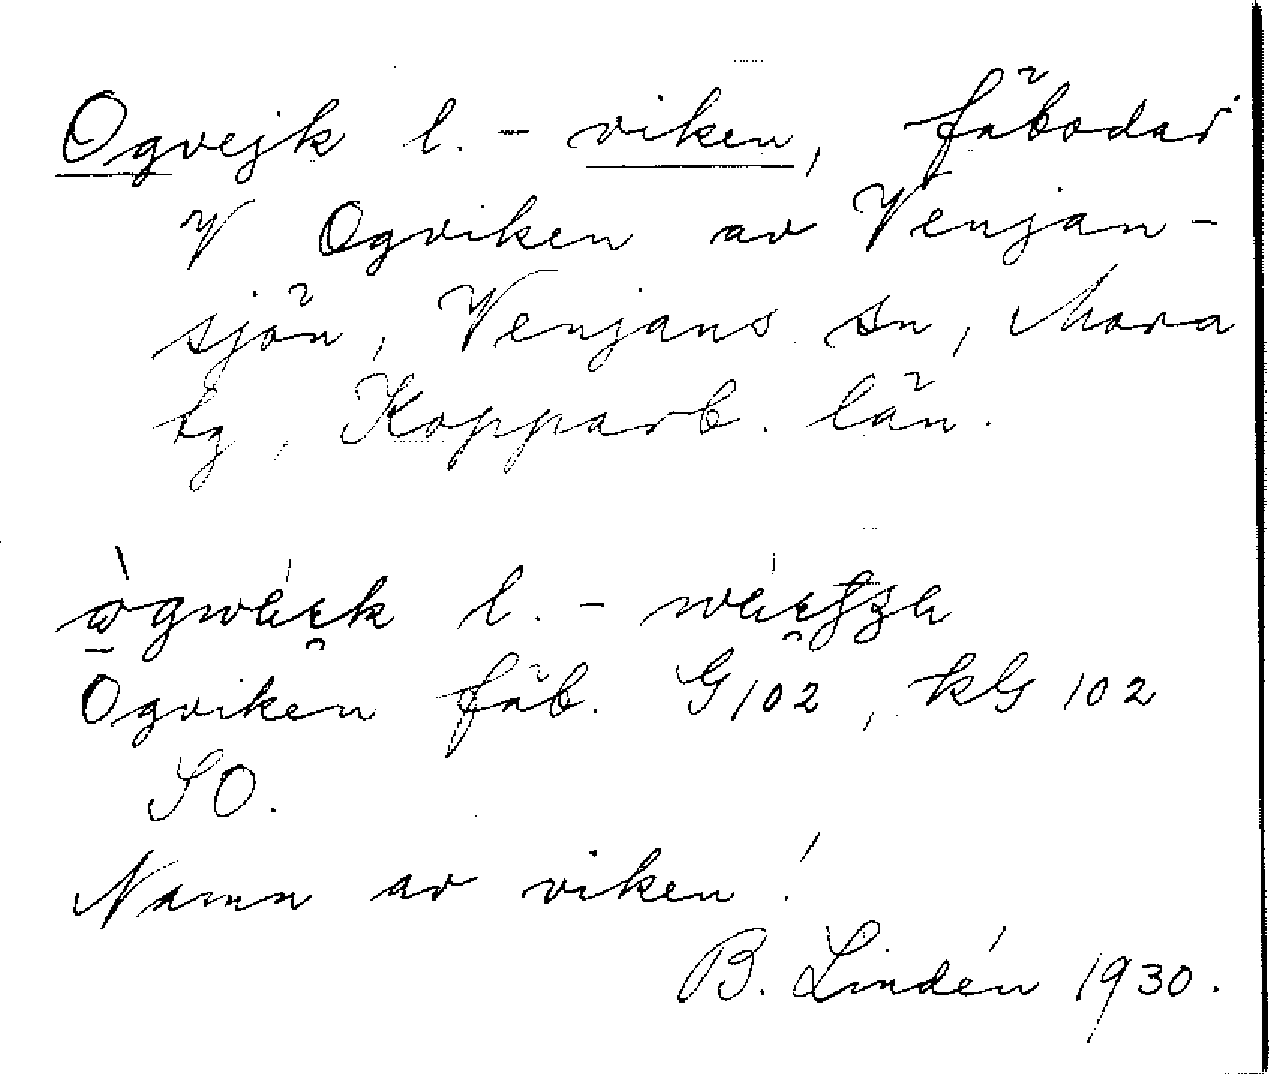 Ogvejk l. - viken, fäbodar
V Ogviken av Venjan-
sjön, Venjans sn, Mora
tg, Kopparb. län.
l. -
Ogviken fäb. G102, kG 102
SO.
Namn av viken!
B. Lindén 1930.